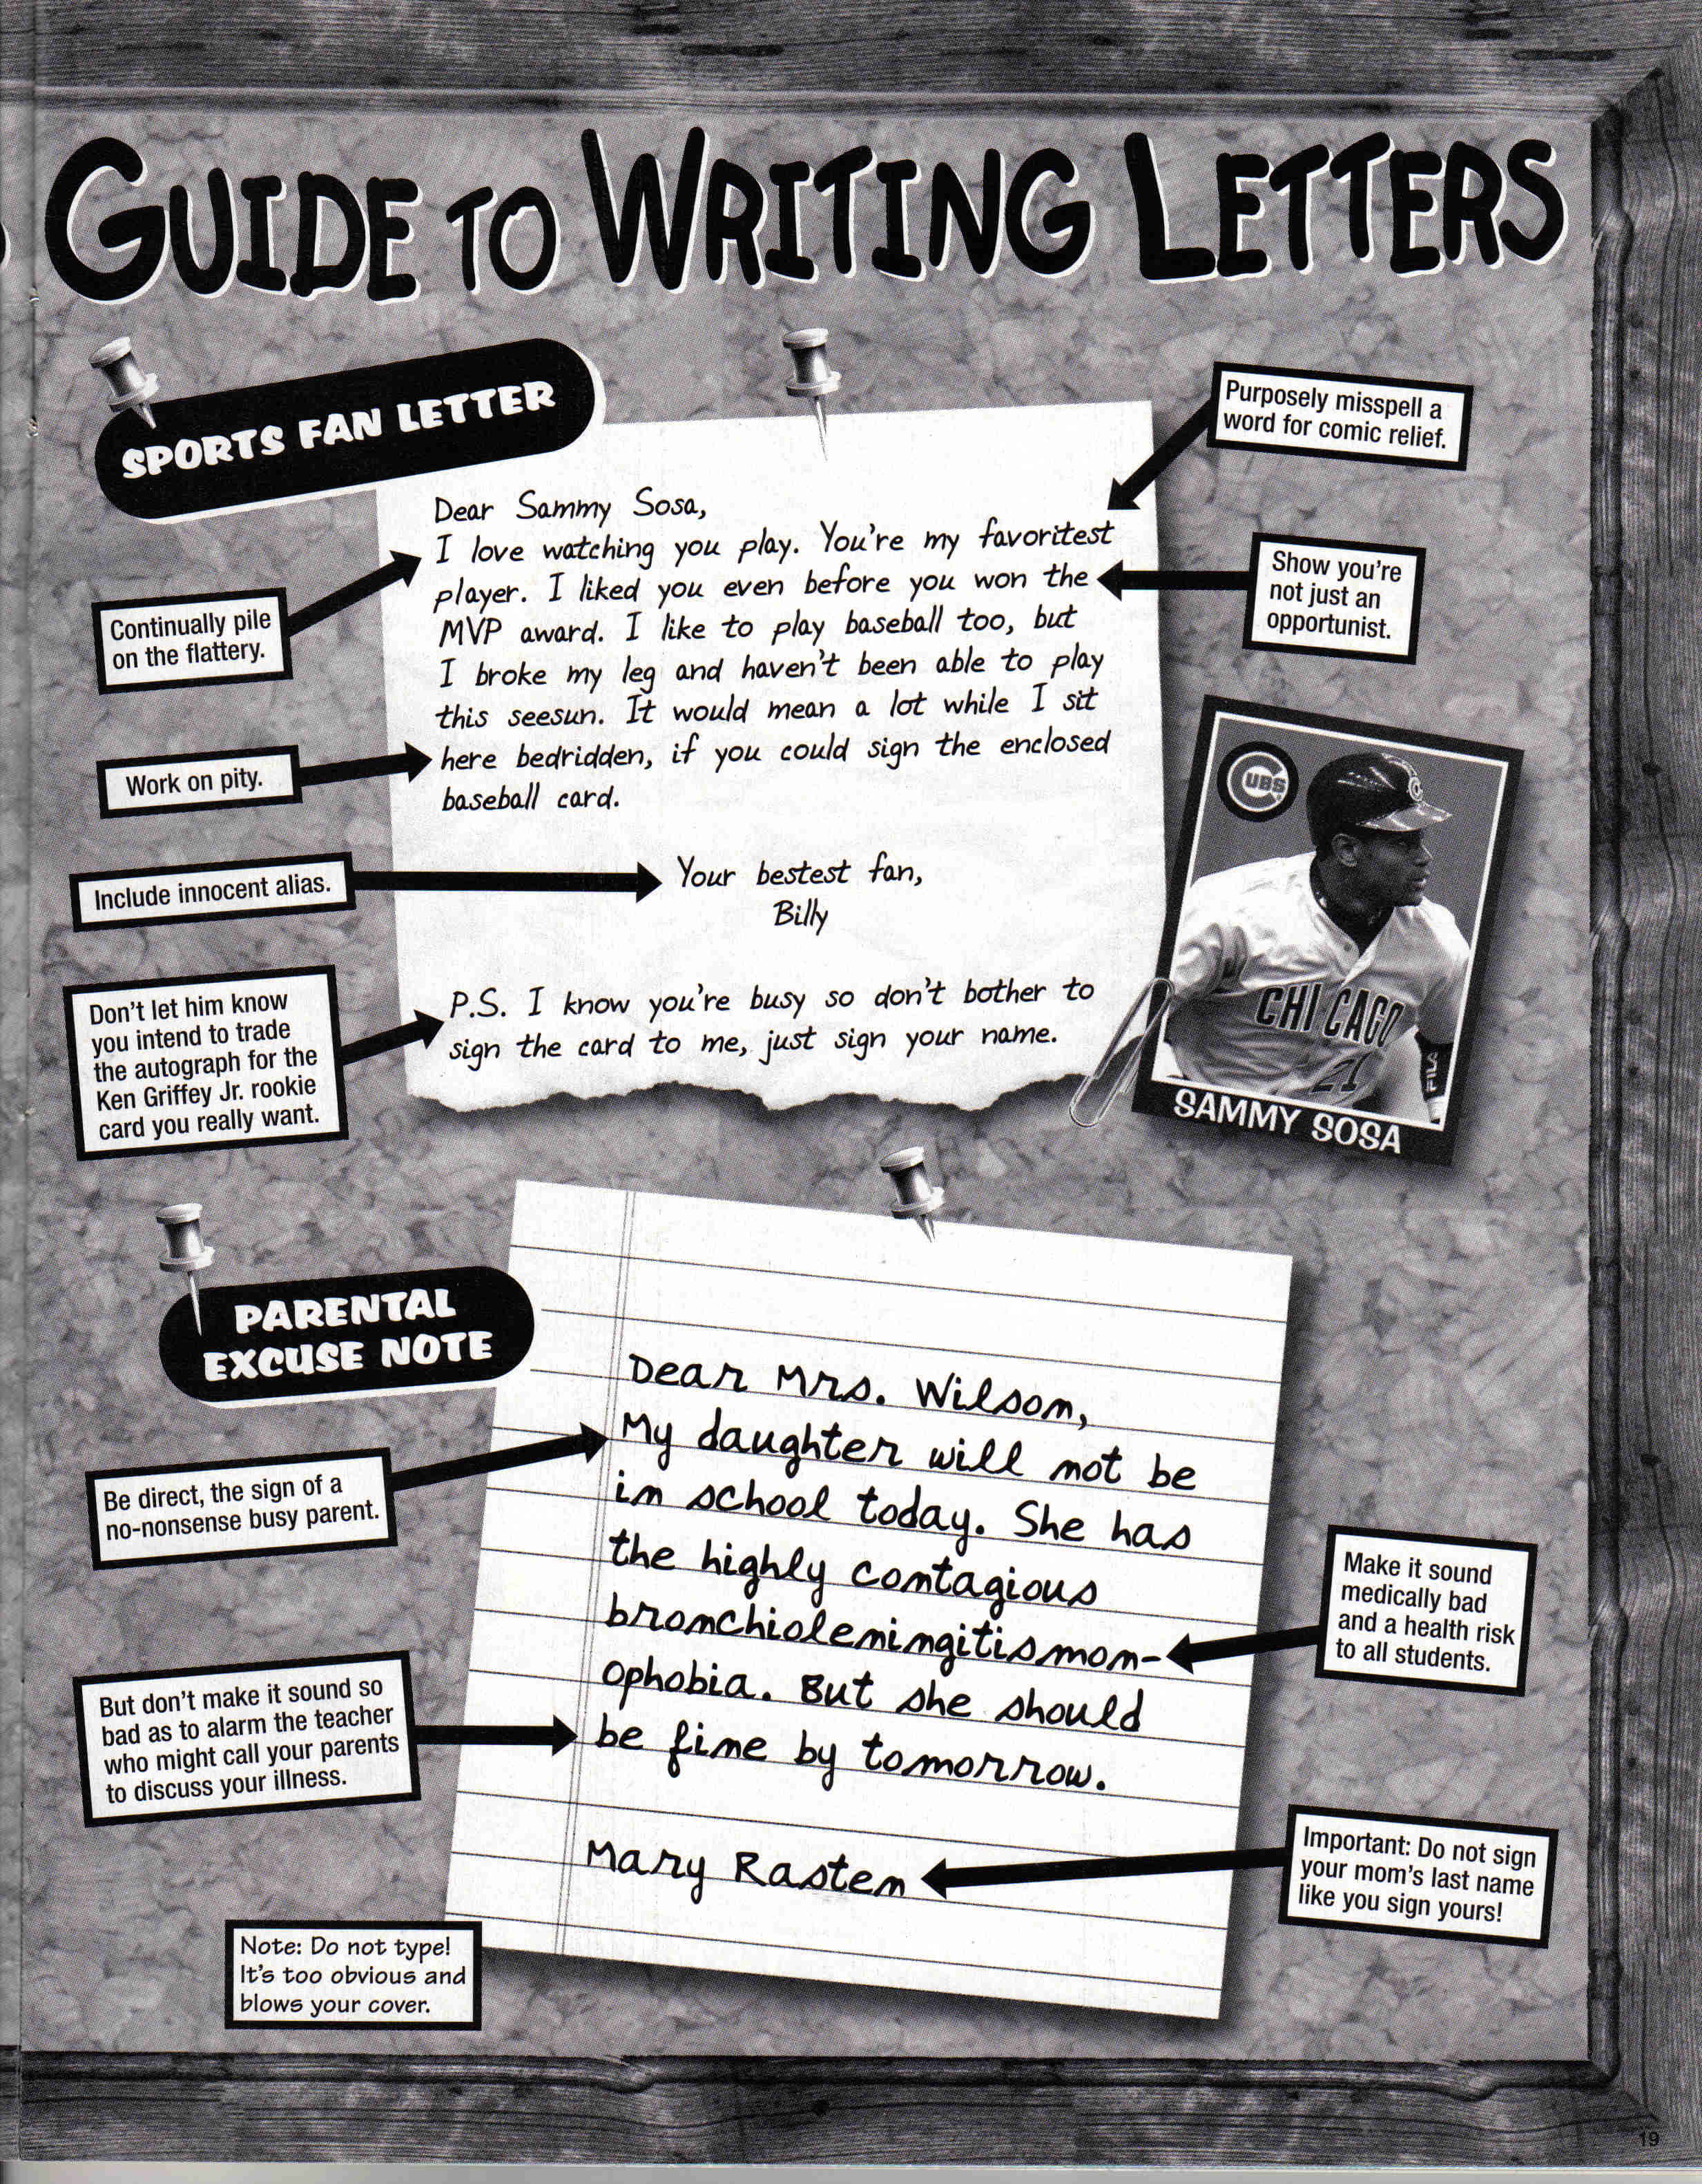 GUIDE TO WRITING LETTERS
SPORTS FAN LETTER
Purposely misspell a
word for comic relief.
Dear Sammy Sosa,
I love watching you play. You're my favoritest
player. I liked you even before you won the
MVP award. I like to play baseball too, but
I broke my leg and haven't been able to play
this seesun. It would mean a lot while I sit
here bedridden, if you could sign the enclosed
baseball card.
Your bestest fan,
Billy
P.S. I know you're busy so don't bother to
sign the card to me, just sign your name.
Continually pile
on the flattery.
Show you're
not just an
opportunist.
Work on pity.
Include innocent alias.
Don't let him know
you intend to trade
the autograph for the
Ken Griffey Jr. rookie
card you really want.
CUBS
C
CHICAGO
21
FILA
SAMMY SOSA
PARENTAL
EXCUSE NOTE
Dear Mrs. Wilson,
My daughter will not be
in school today. She has
the highly contagious
bronchioleningitismon-
ophobia. But she should
be fine by tomorrow.
Mary Rasten
Be direct, the sign of a
no-nonsense busy parent.
Make it sound
medically bad
and a health risk
to all students.
But don't make it sound so
bad as to alarm the teacher
who might call your parents
to discuss your illness.
Important: Do not sign
your mom's last name
like you sign yours!
Note: Do not type!
It's too obvious and
blows your cover.
19